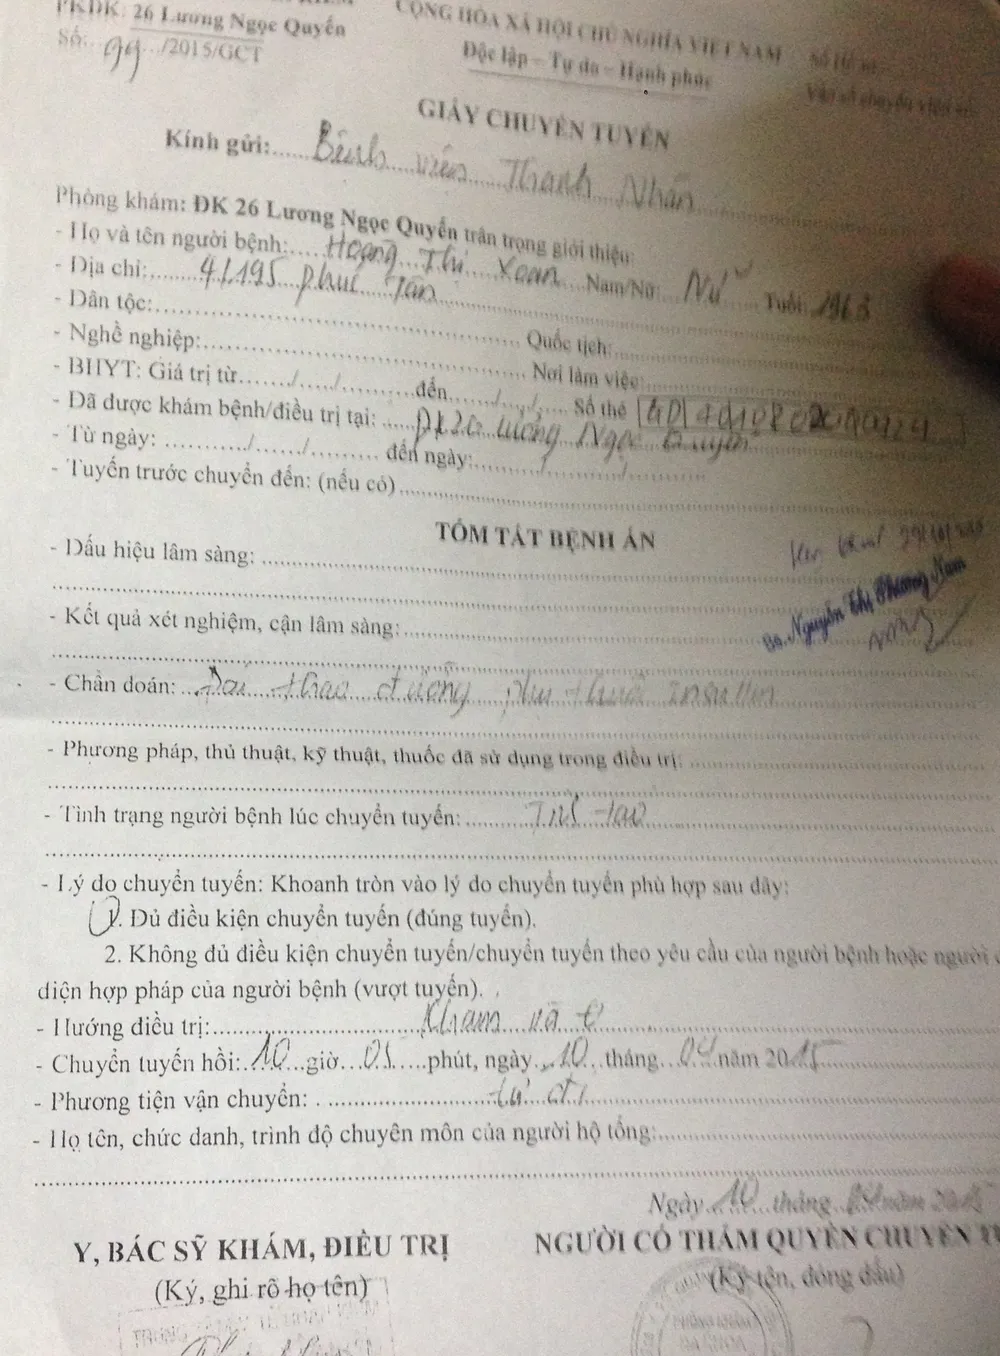 PKĐK: 26 Lương Ngọc Quyến
Số: 99 /2015/GCT
CỘNG HÒA XÃ HỘI CHỦ NGHĨA VIỆT NAM
Độc lập – Tự do – Hạnh phúc
Số Hồ sơ
Vào sổ chuyển viện số
GIẤY CHUYỂN TUYẾN
Kính gửi: Bệnh viện Thanh Nhàn
Phòng khám: ĐK 26 Lương Ngọc Quyến trân trọng giới thiệu:
- Họ và tên người bệnh: Hoàng Thị Xoan Nam/Nữ: Nữ Tuổi: 1963
- Địa chỉ: 4/195 Phúc Tân
- Dân tộc: Quốc tịch:
- Nghề nghiệp: Nơi làm việc:
- BHYT: Giá trị từ....../....../......đến....../....../...... Số thẻ
- Đã được khám bệnh/điều trị tại: ĐK 26 Lương Ngọc Quyến
- Từ ngày: ....../....../...... đến ngày:....../....../......
- Tuyến trước chuyển đến: (nếu có)
TÓM TẮT BỆNH ÁN
- Dấu hiệu lâm sàng:
Bs. Nguyễn Thị Phương Nam
- Kết quả xét nghiệm, cận lâm sàng:
- Chẩn đoán: Đái tháo đường phụ thuộc insulin
- Phương pháp, thủ thuật, kỹ thuật, thuốc đã sử dụng trong điều trị:
- Tình trạng người bệnh lúc chuyển tuyến: Tỉnh táo
- Lý do chuyển tuyến: Khoanh tròn vào lý do chuyển tuyến phù hợp sau đây:
1. Đủ điều kiện chuyển tuyến (đúng tuyến).
2. Không đủ điều kiện chuyển tuyến/chuyển tuyến theo yêu cầu của người bệnh hoặc người
diện hợp pháp của người bệnh (vượt tuyến).
- Hướng điều trị: Khám và
- Chuyển tuyến hồi: 10 giờ 05 phút, ngày 10 tháng 04 năm 2015
- Phương tiện vận chuyển: tự đi
- Họ tên, chức danh, trình độ chuyên môn của người hộ tống:
Ngày 10 tháng 04 năm 2015
Y, BÁC SỸ KHÁM, ĐIỀU TRỊ
(Ký, ghi rõ họ tên)
NGƯỜI CÓ THẨM QUYỀN CHUYỂN
(Ký tên, đóng dấu)
PHÒNG KHÁM
ĐA KHOA